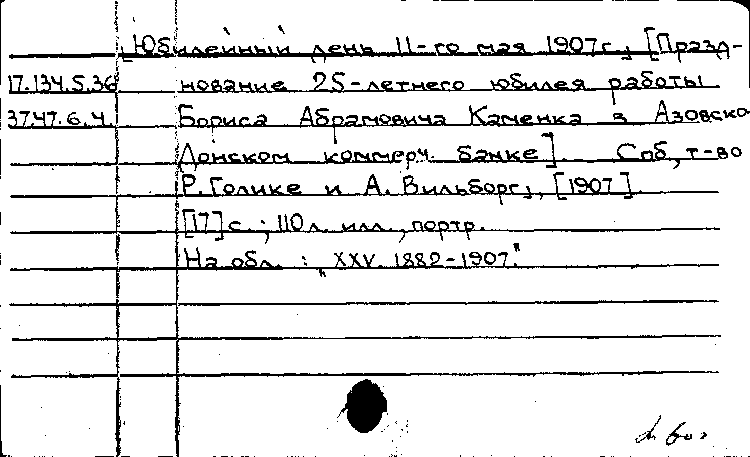 Юбилейный день 11-го мая 1907г. [Празд-
17.134.5.36 нование 25-летнего юбилея работы
37.47.6.4. Бориса Абрамовича Каменка в Азовско-
Донском коммерч. банке]. Спб, т-во
Р. Голике и А. Вильборг, [1907].
[17] с.; 110 л. илл., портр.
На обл.: „XXV. 1882-1907."